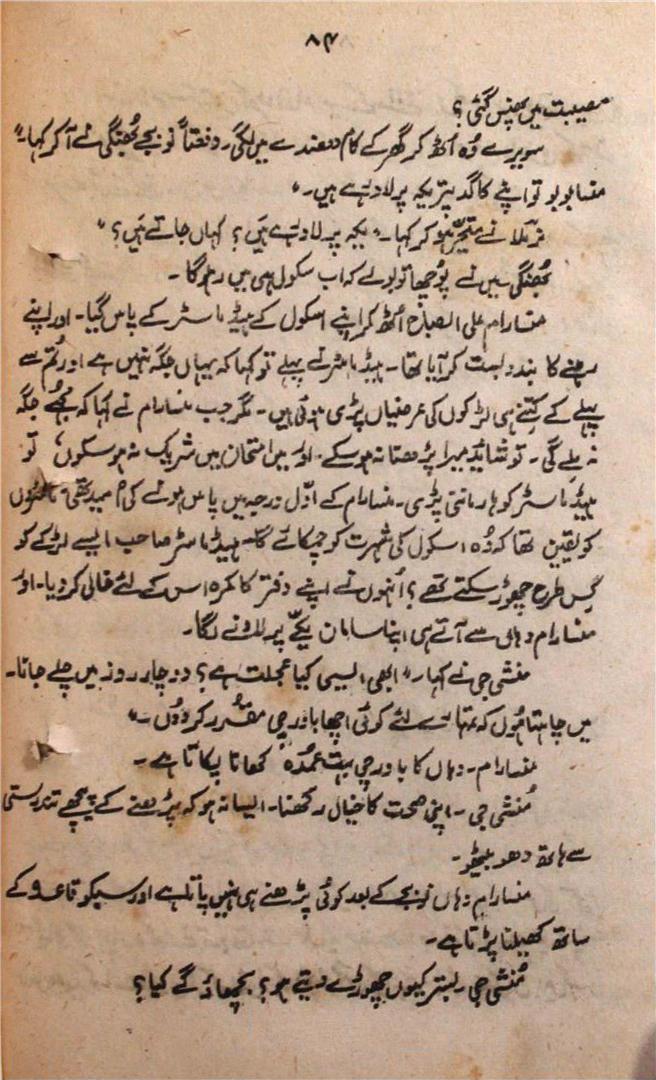 ۸۴
مصیبت میں پھنس گئی؟
سویرے وُہ اُٹھ کر گھر کے کام دھندے میں لگی۔ دفعتاً نو بجے بُھنگی نے آ کر کہا۔"
منسا بوبو تو اپنے کاگد پتر یکہ پر لاد رہے ہیں۔"
نرملا نے متحیّر ہو کر کہا۔" یکہ پر لاد رہے ہیں؟ کہاں جاتے ہیں؟"
بُھنگی میں نے پُوچھا تو بولے کہ اب سکول ہی میں رہوں گا۔
منسا رام علی الصباح اُٹھ کر اپنے اسکول کے ہیڈ ماسٹر کے پاس گیا۔ اور اپنے
رہنے کا بندوبست کر آیا تھا۔ ہیڈ ماسٹر نے پہلے تو کہا کہ یہاں جگہ نہیں ہے اور تُم سے
پہلے کے کتنے ہی لڑکوں کی عرضیاں پڑی ہوئی ہیں۔ مگر جب منسا رام نے کہا کہ مُجھے جگہ
نہ ملے گی۔ تو شائد میرا پڑھنا نہ ہو سکے۔ اور میں امتحان میں شریک نہ ہو سکوں، تو
ہیڈ ماسٹر کو ہار ماننی پڑی۔ منسا رام کے اوّل درجہ میں پاس ہونے کی اُمید تھی۔
کو یقین تھا کہ وُہ اسکول کی شہرت کو چمکائے گا۔ ہیڈ ماسٹر صاحب ایسے لڑکے کو
کِس طرح چھوڑ سکتے تھے؟ اُنہوں نے اپنے دفتر کا کمرہ اس کے لئے خالی کر دیا۔ اور
منسا رام وہاں سے آتے ہی اپنا سامان یکّے پر لادنے لگا۔
منشی جی نے کہا۔" ابھی ایسی کیا عجلت ہے؟ دو چار روز میں چلے جانا۔
میں چاہتا ہُوں کہ تمہارے لئے کوئی اچھا باورچی مقُرر کر دوُں۔"
منسا رام۔ وہاں کا باورچی بہت عمُدہ کھانا پکاتا ہے۔
مُنشی جی۔ اپنی صحت کا خیال رکھنا۔ ایسا نہ ہو کہ پڑھنے کے پیچھے تندرستی
سے ہاتھ دھو بیٹھو۔
منسا رام وہاں نو بجے کے بعد کوئی پڑھنے ہی نہیں پاتا ہے اور سب کو قاعدہ کے
ساتھ کھیلنا پڑتا ہے۔
مُنشی جی۔ بستر کیوں چھوڑے دیتے ہو؟ بچھاؤ گے کیا؟